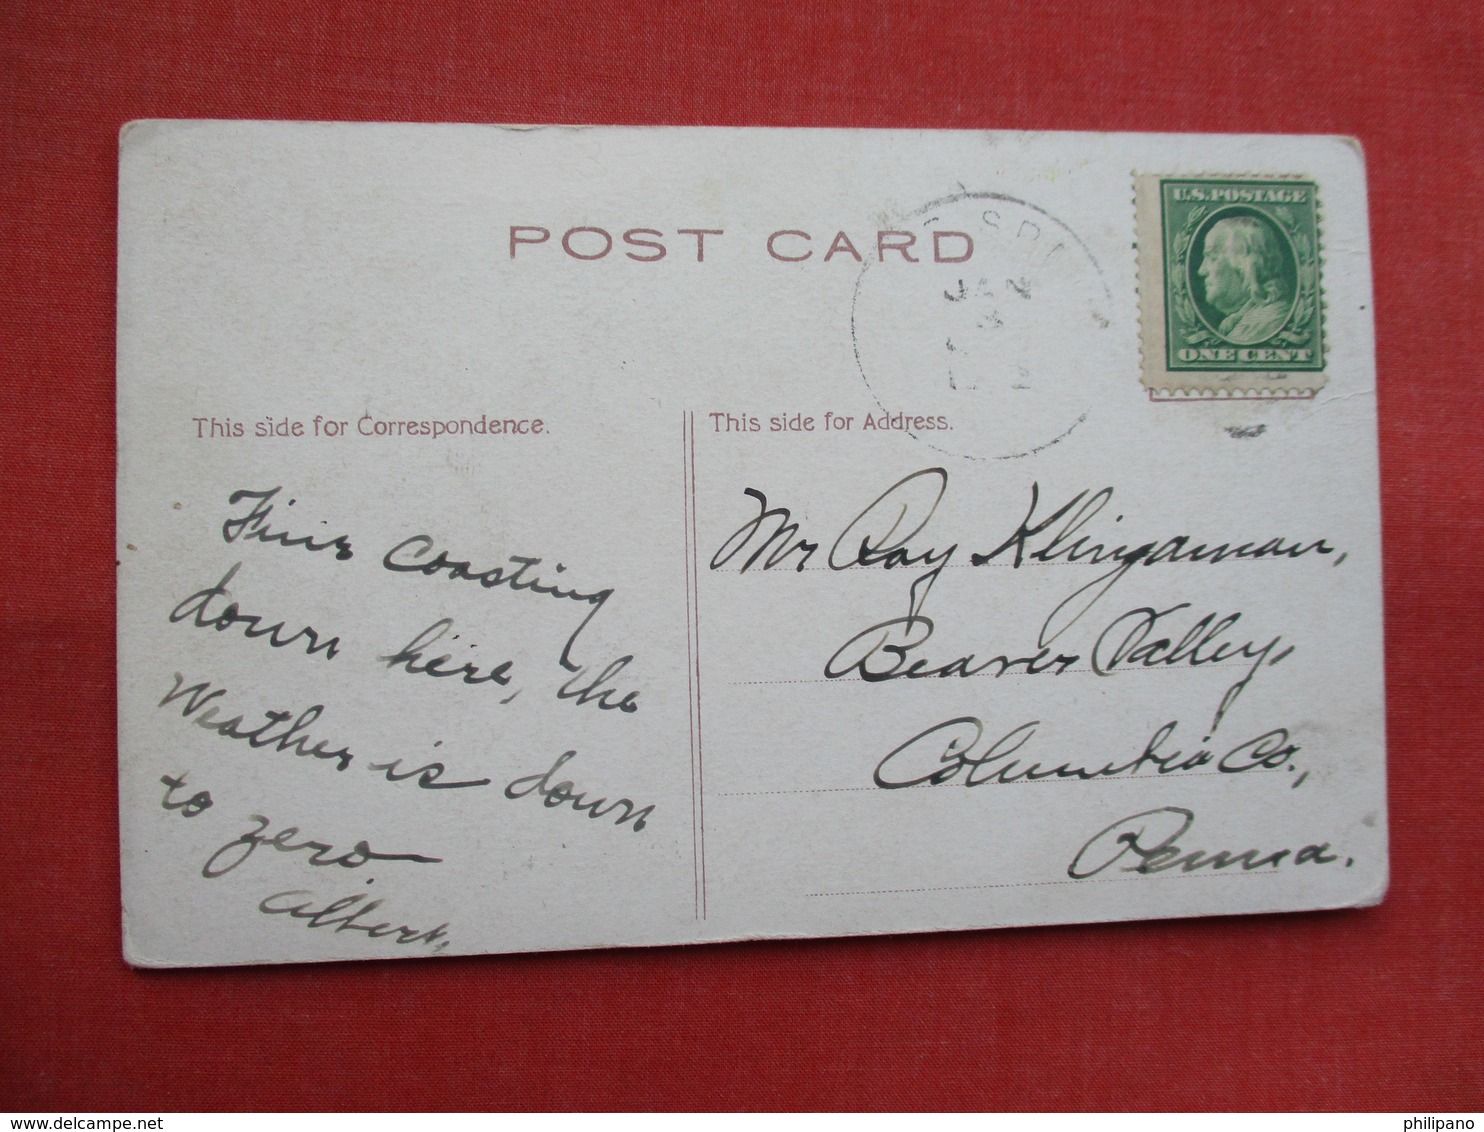 POST CARD
JAN
3
U.S.POSTAGE
ONE CENT
This side for Correspondence.
This side for Address.
Fine coasting
down here, the
Weather is down
to zero.
Albert.
Mr Ray Klingaman,
Beaver Valley,
Columbia Co.,
Penna.
delcampe.net
philipano